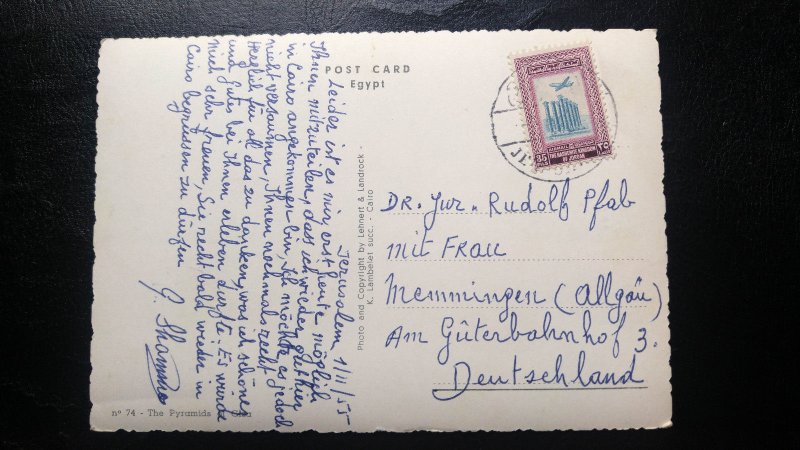 POST CARD
Egypt
Jerusalem 1/II/55
Leider ist es mir erst heute möglich
Ihnen mitzuteilen, dass ich wieder gut hier
in Cairo angekommen bin, Ich möchte es jedoch
nicht versäumen, Ihnen nochmals recht
herzlich für all das zu danken, was ich schöne
und gutes bei Ihnen erleben durfte. Es würde
mich sehr freuen, Sie recht bald wieder in
Cairo begrüssen zu dürfen
G.
Photo and Copyright by Lehnert & Landrock -
K. Lambelet succ. - Cairo
n° 74 - The Pyramids Giza
35
THE HASHEMITE KINGDOM
OF JORDAN
٣٥
Dr. Jur. Rudolf Pfab
mit Frau
Memmingen (Allgäu)
Am Güterbahnhof 3.
Deutschland